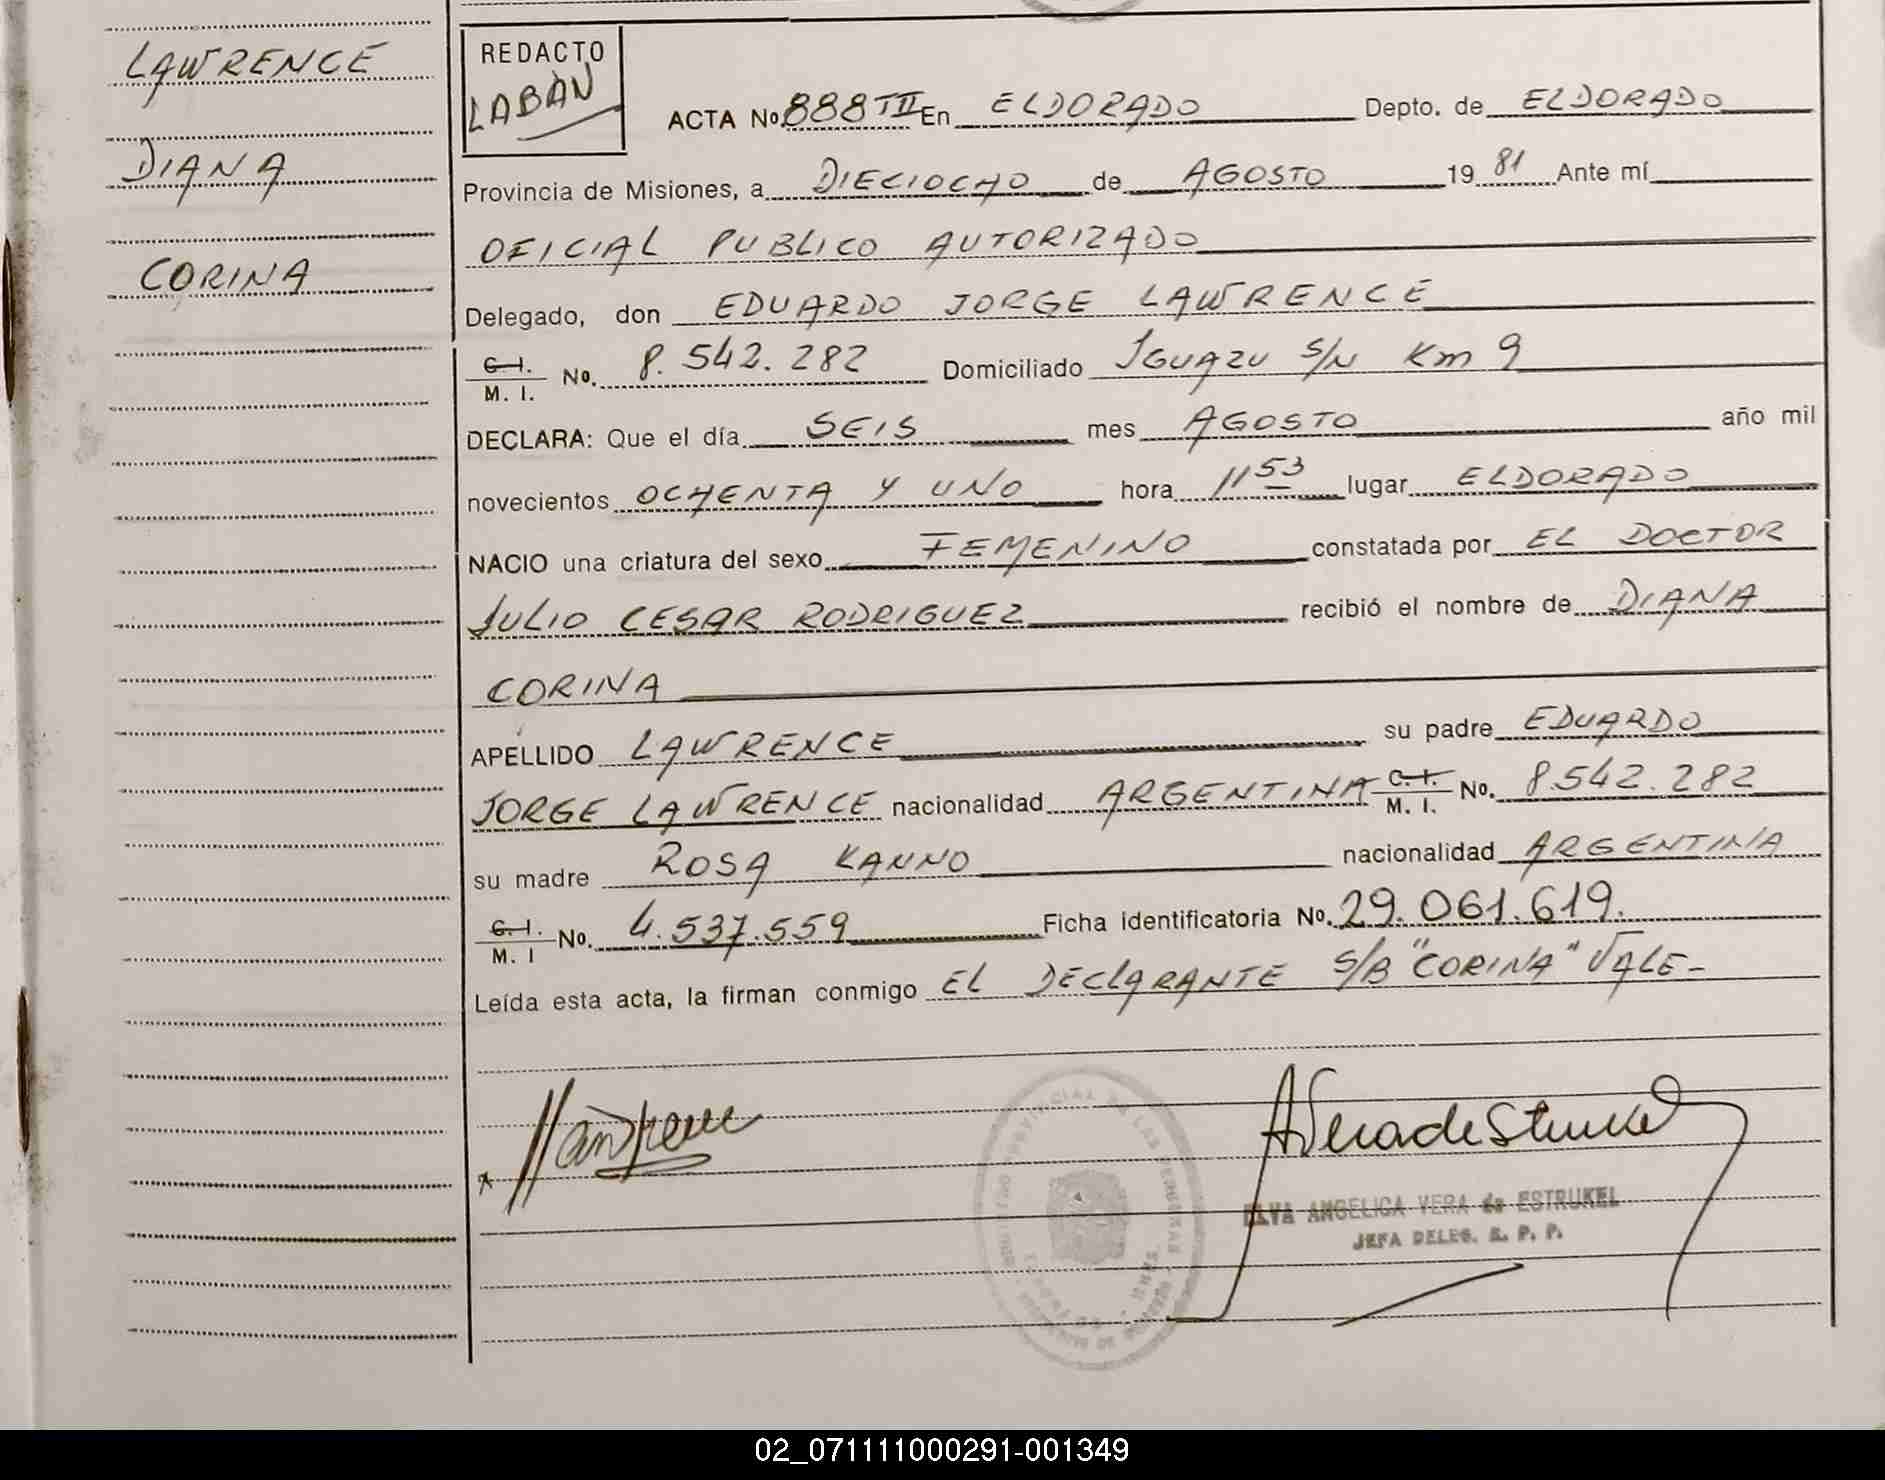 LAWRENCE
DIANA
CORINA
REDACTO
LABAN
ACTA No. 888 TII En ELDORADO Depto. de ELDORADO
Provincia de Misiones, a DIECIOCHO de AGOSTO 19 81 Ante mí
OFICIAL PUBLICO AUTORIZADO
Delegado, don EDUARDO JORGE LAWRENCE
C.I. M. I. No. 8.542.282 Domiciliado IGUAZU S/N Km 9
DECLARA: Que el día SEIS mes AGOSTO año mil
novecientos OCHENTA Y UNO hora 11 53 lugar ELDORADO
NACIO una criatura del sexo FEMENINO constatada por EL DOCTOR
JULIO CESAR RODRIGUEZ recibió el nombre de DIANA
CORINA
APELLIDO LAWRENCE su padre EDUARDO
JORGE LAWRENCE nacionalidad ARGENTINA C.I. M. I. No. 8.542.282
su madre ROSA KANNO nacionalidad ARGENTINA
C.I. M. I No. 4.537.559 Ficha identificatoria No. 29.061.619.
Leída esta acta, la firman conmigo EL DECLARANTE S/B "CORINA" VALE-
AVera de Struke
ELVA ANGELICA VERA de ESTRUKEL
JEFA DELEG. R. P. P.
02_071111000291-001349